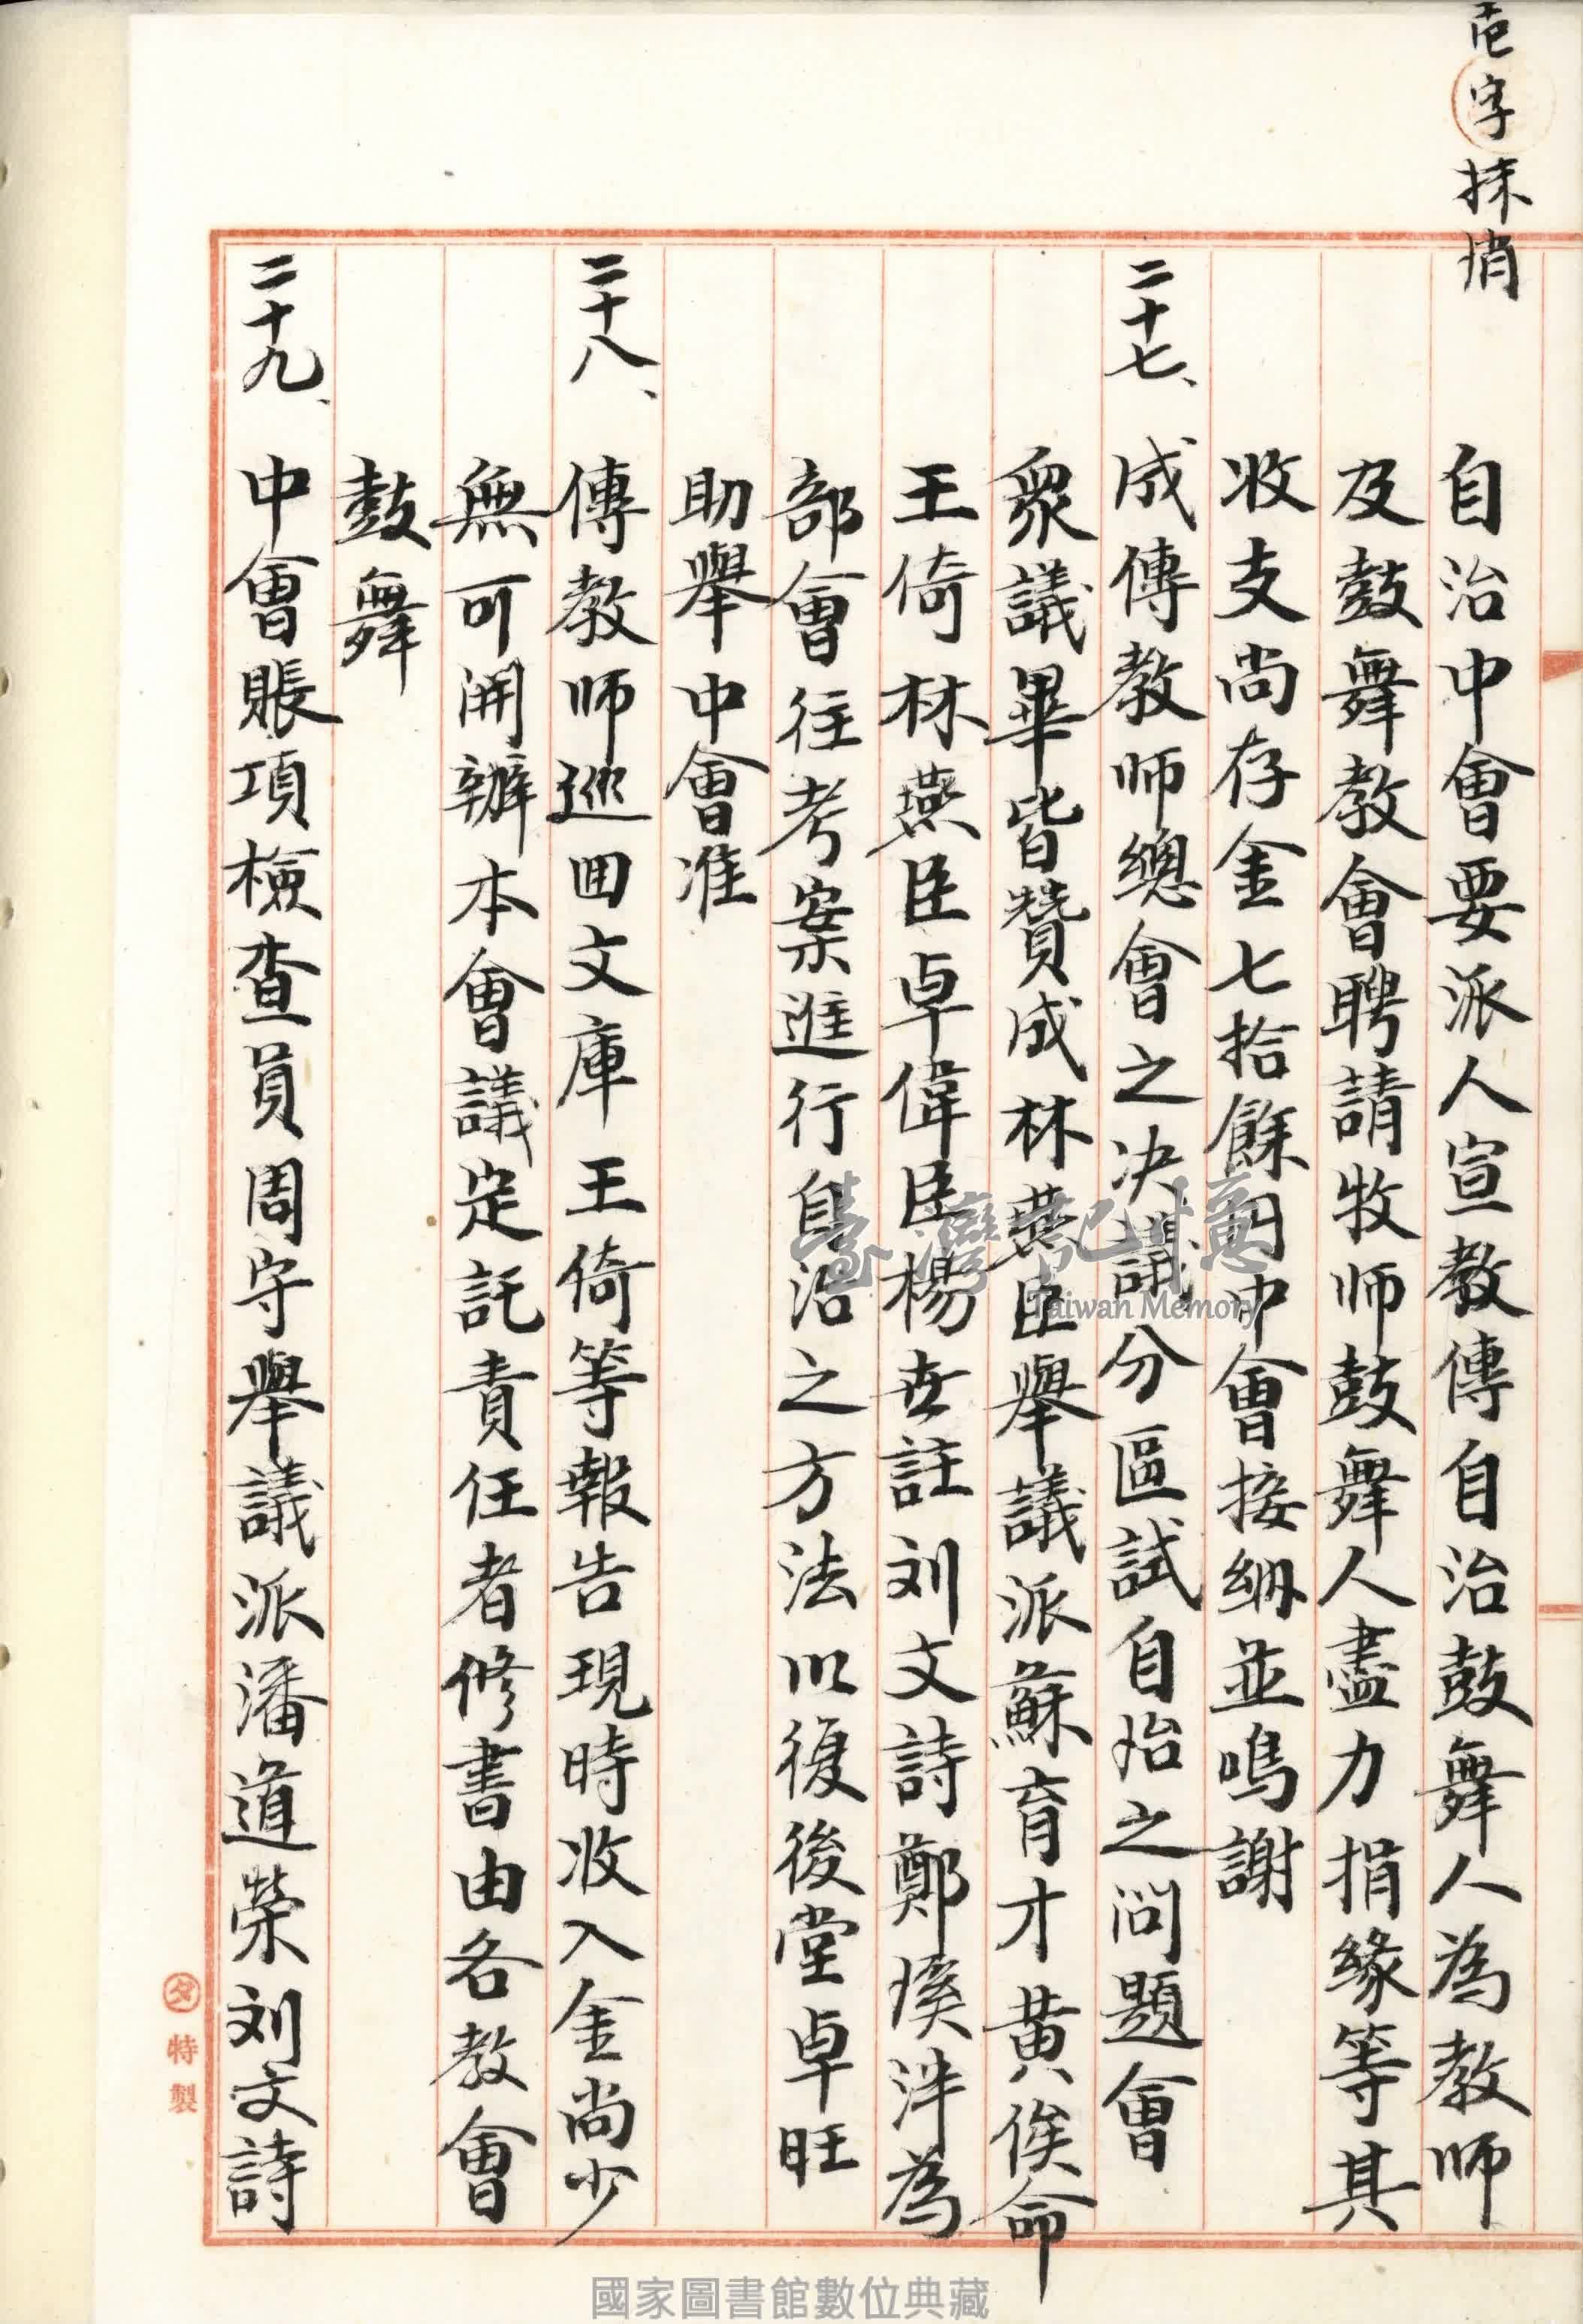 壱字抹消
自治中會要派人宣教傳自治鼓舞人為教師
及鼓舞教會聘請牧師鼓舞人盡力捐緣等其
收支尚存金七拾餘円中會接納並鳴謝
二十七、成傳教師總會之决議分區試自治之問題會
衆議畢皆贊成林燕臣舉議派蘇育才黃俟命
王倚林燕臣卓偉臣楊世註刘文詩鄭溪泮為
部會往考案進行自治之方法以復後堂卓旺
助舉中會准
二十八、傳教師巡回文庫王倚等報告現時收入金尚少
無可開辦本會議定託責任者修書由各教會
鼓舞
二十九、中會賬項檢查員周守舉議派潘道榮刘文詩
タ特製
臺灣記憶
Taiwan Memory
國家圖書館數位典藏